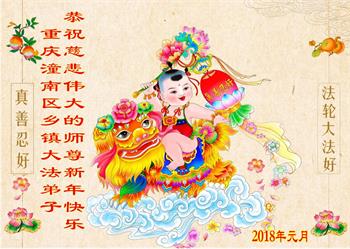 法轮大法好
恭祝慈悲伟大的师尊新年快乐
重庆潼南区乡镇大法弟子
真善忍好
2018年元月